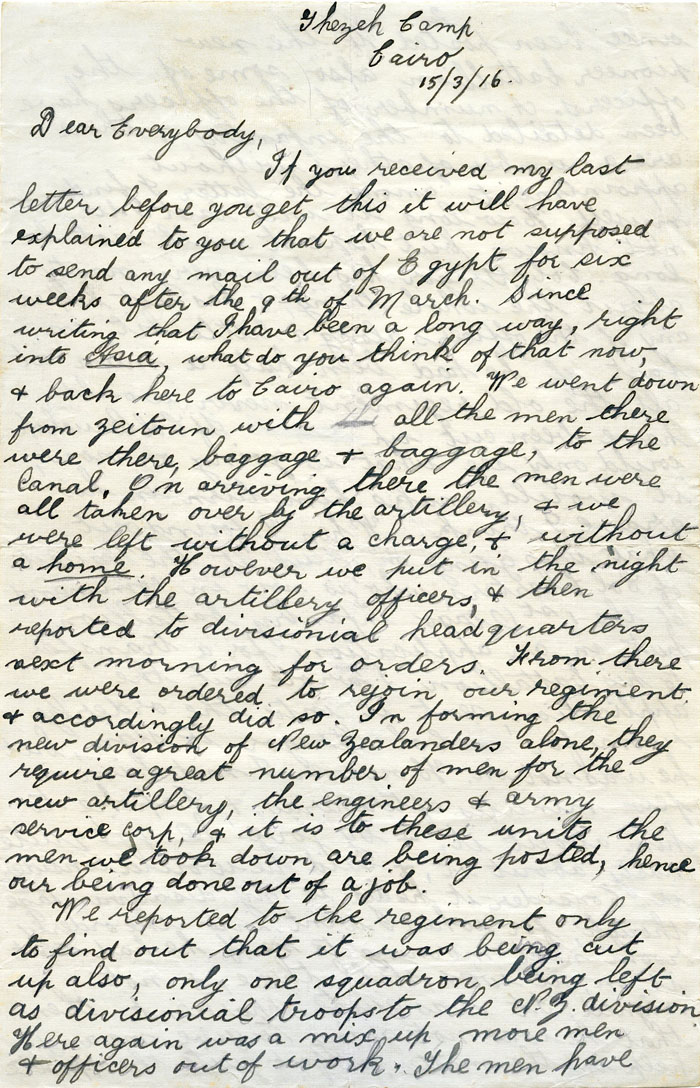 Ghezeh Camp
Cairo
15/3/16.
Dear Everybody,
If you received my last
letter before you get this it will have
explained to you that we are not supposed
to send any mail out of Egypt for six
weeks after the 9th of March. Since
writing that I have been a long way, right
into Asia, what do you think of that now,
& back here to Cairo again. We went down
from Zeitoun with all the men there
were there, baggage & baggage, to the
Canal. On arriving there the men were
all taken over by the artillery, & we
were left without a charge, & without
a home. However we put in the night
with the artillery officers, & then
reported to divisionial headquarters
next morning for orders. From there
we were ordered to rejoin our regiment
& accordingly did so. In forming the
new division of New Zealanders alone, they
require a great number of men for the
new artillery, the engineers & army
service corp, & it is to these units the
men we took down are being posted, hence
our being done out of a job.
We reported to the regiment only
to find out that it was being cut
up also, only one squadron being left
as divisionial troops to the N.Z. division
Here again was a mix up more men
& officers out of work. The men have